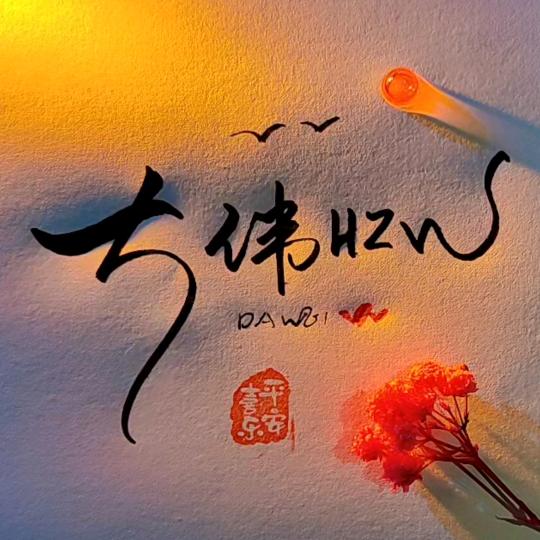 大伟HZW
DAWEI
平安
喜乐